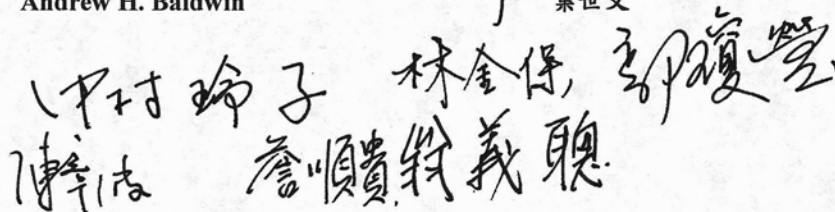 Andrew H. Baldwin 葉世文
中村玲子 林金保, 郭瓊瑩
陳章波 詹順貴 義聰